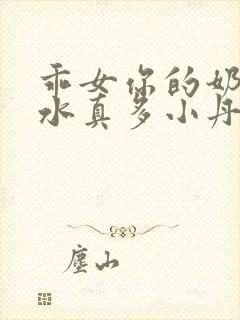 乖女你的奶
水真多小丹
尘山